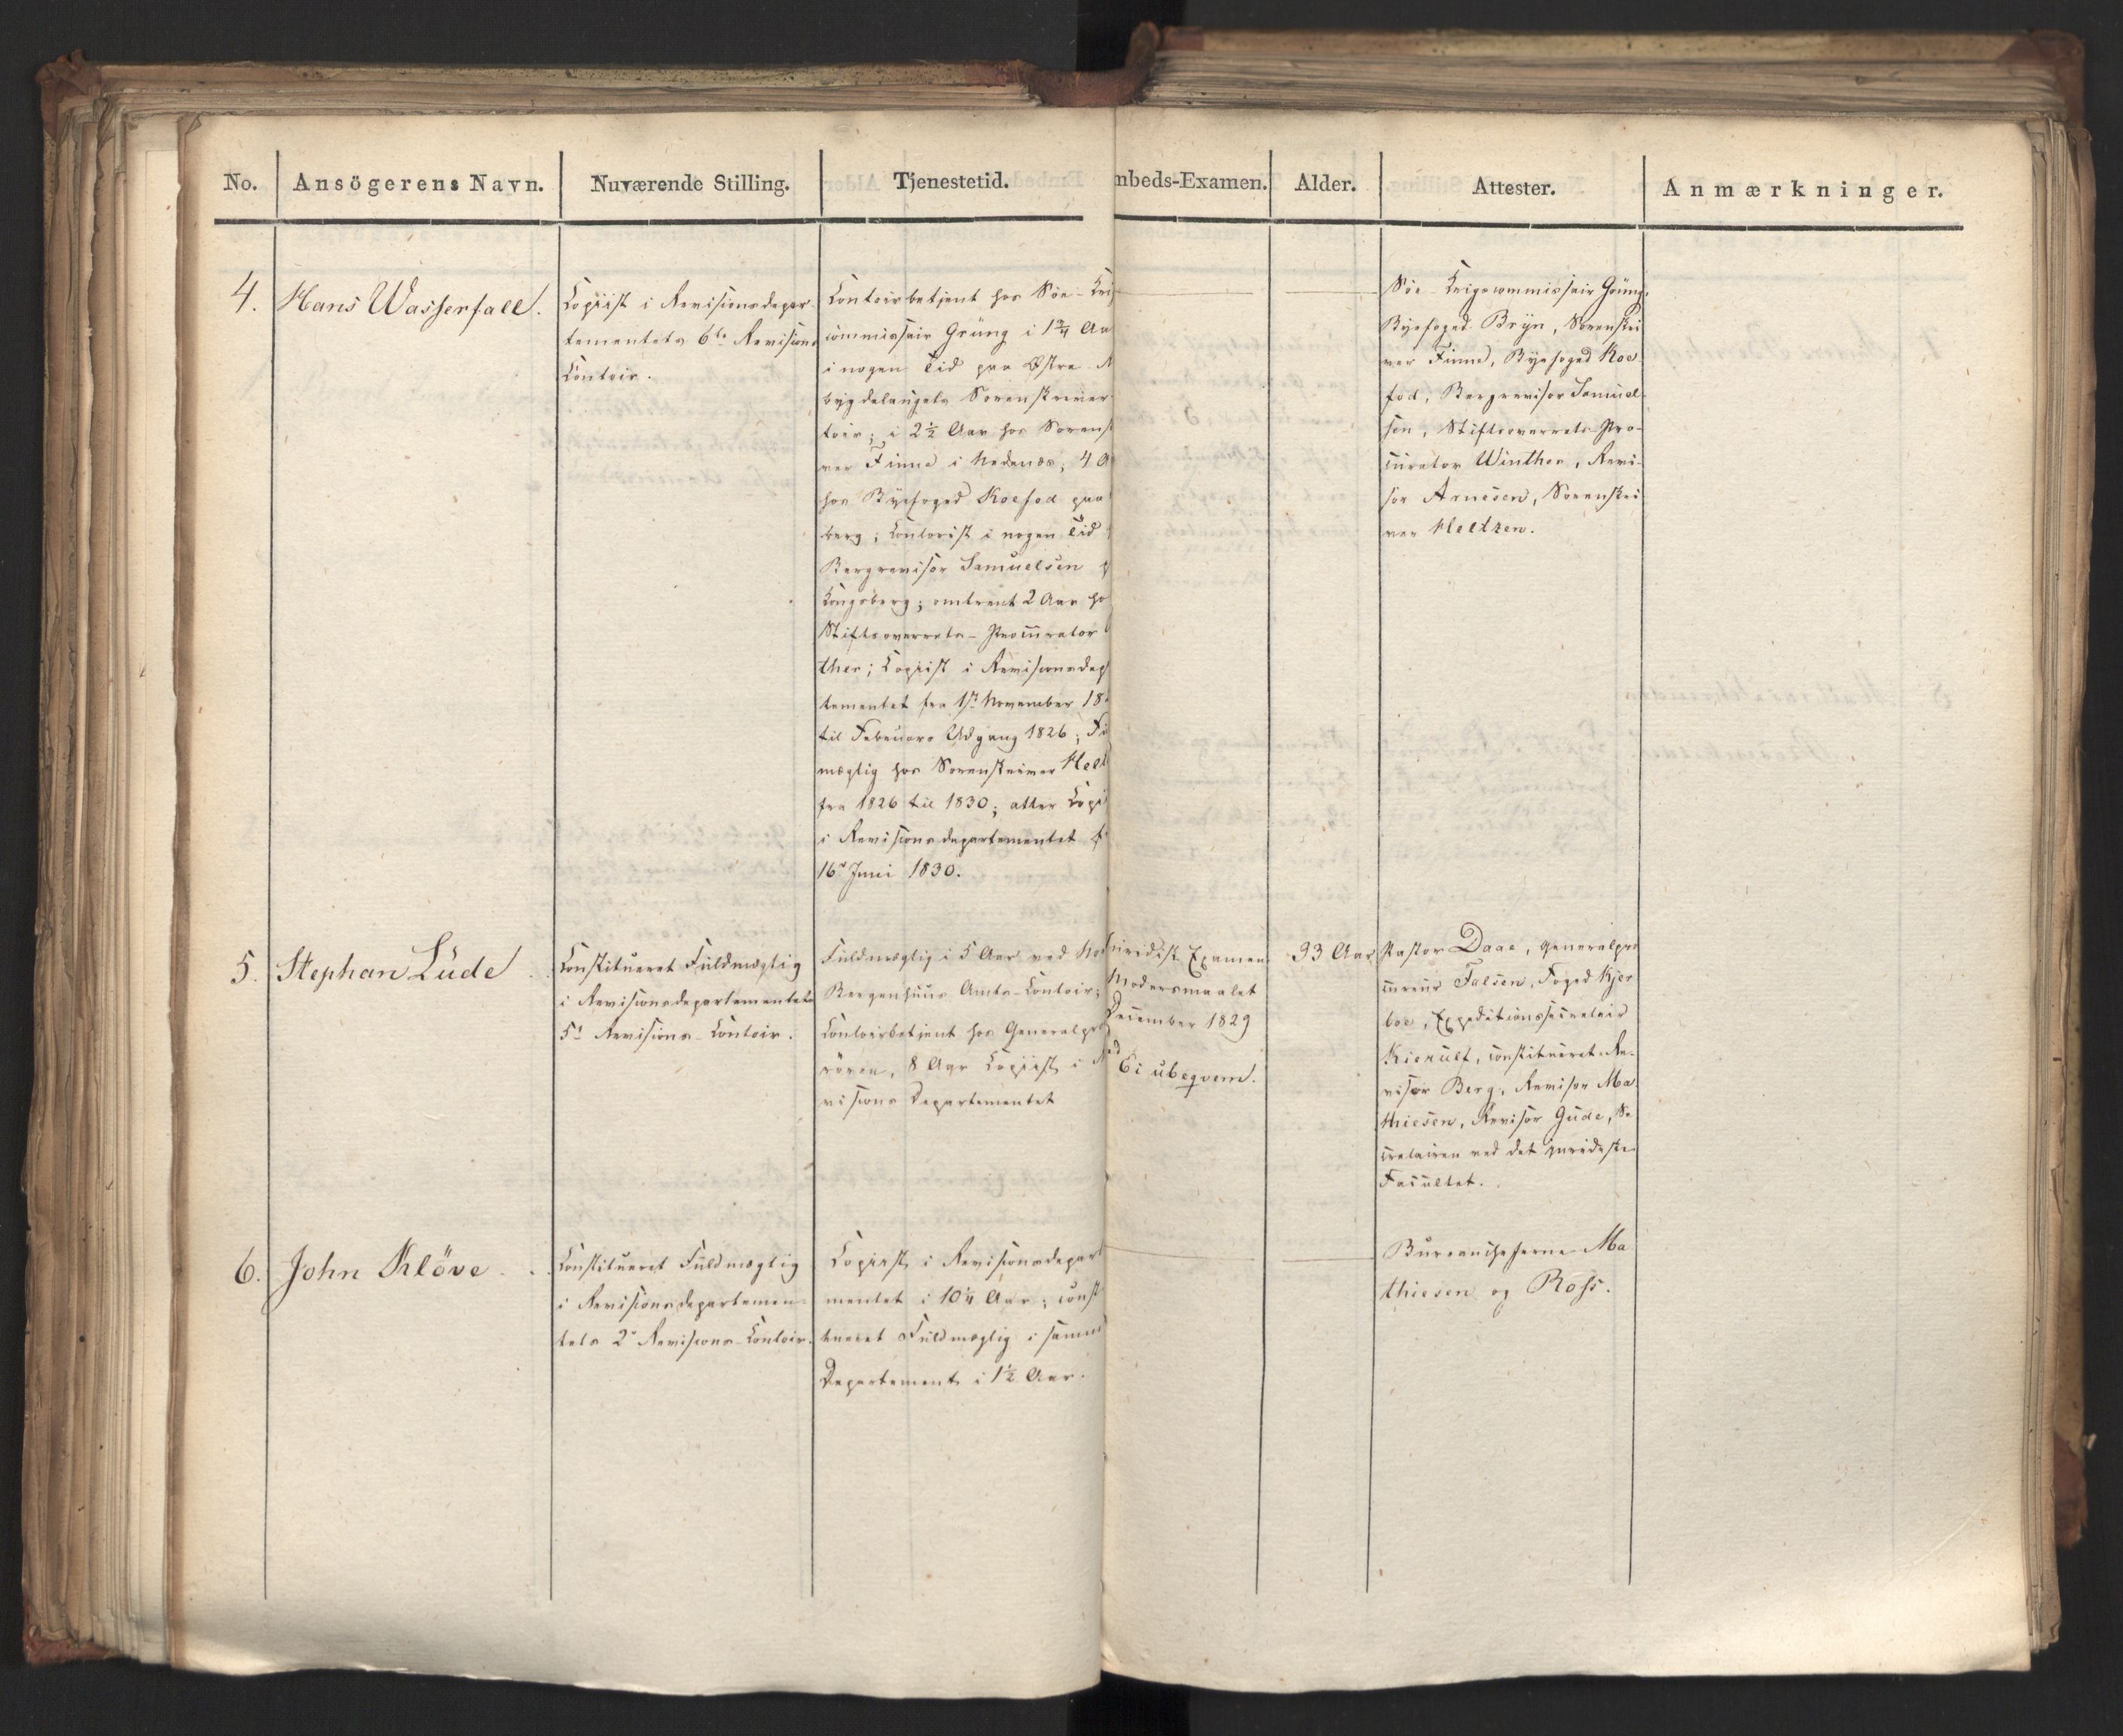 No. Ansögerens Navn. Nuværende Stilling. Tjenestetid. mbeds-Examen. Alder. Attester. Anmærkninger.
4. Hans Wasserfall.
Copiist i Revisionsdepar
tementets 6te Revisions
Contoir.
Contoirbetjent hos Söe-Kri
commissair Grüng i 1¾ Aa
i nogen Tid paa Østre
bygdelaugets Sorenskriver
toir; i 2½ Aar hos Sorensk
ver Finne i Nedenæs; 4 A
hos Byefoged Koefod paa
berg; Contorist i nogen Tid
Bergrevisor Samuelsen
Kongsberg; omtrent 2 Aar ho
Stiftsoverrets-Procurator
ther; Copiist i Revisionsdep
tementet fra 1ste November 18
til Februars Udgang 1826; Fu
mægtig hos Sorenskriver Helt
fra 1826 til 1830; atter Copi
i Revisionsdepartementet f
16de Juni 1830.
Söe-Krigscommissair Grüng,
Byefoged Bryn, Sorenskri
ver Finne, Byefoged Koe
fod, Bergrevisor Samuel
sen, Stiftsoverrets-Pro-
curator Winther, Revi-
sor Arnesen, Sorenskri
ver Heltzen.
5. Stephan Lüde
Constitueret Fuldmægtig
i Revisionsdepartementets
5te Revisions-Contoir.
Fuldmægtig i 5 Aar ved No
Bergenhuus Amts-Contoir;
Contoirbetjent hos Generalpro
rören, 8 Aar Copiist i R
visions Departementet
Juridisk Examen
Modersmaalet
December 1829
Ei ubeqvem.
33 Aar
Pastor Daae, Generalpro
cureur Falsen, Foged Kjer
boe, Expeditionssecretair
Kierulf, constitueret Re-
visor Berg, Revisor Ma
thiesen, Revisor Gude, Se
cretairen ved det juridiske
Facultet.
6. John Klöve
Constitueret Fuldmægtig
i Revisionsdepartemen-
tets 2de Revisions-Contoir.
Copiist i Revisionsdepart
mentet i 10¼ Aar; const
tueret Fuldmægtig i samme
Departement i 1½ Aar.
Bureaucheferne Ma
thiesen og Ross.